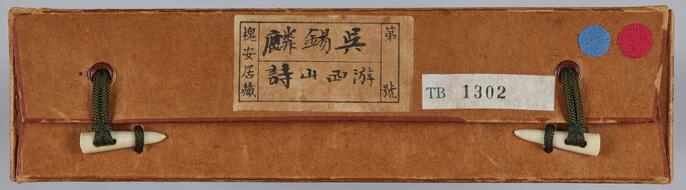 第 號
吳錫麟
游西山詩
槐安居藏
TB 1302